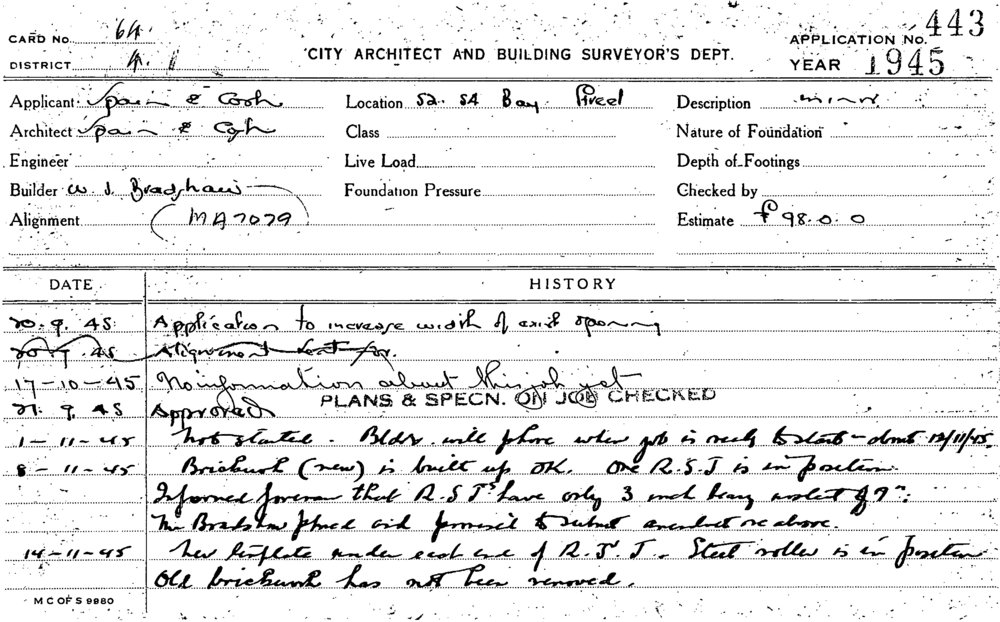 CARD No. 64
DISTRICT
CITY ARCHITECT AND BUILDING SURVEYOR'S DEPT.
APPLICATION No. 443
YEAR 1945
Applicant Spain & Cosh Location 52. 54 Bay Street Description minor
Architect Spain & Cosh Class Nature of Foundation
Engineer Live Load Depth of Footings
Builder W. J. Bradshaw Foundation Pressure Checked by
Alignment (MA7079) Estimate £98.0.0
DATE HISTORY
20.9.45 Application to increase width of exist opening
20.9.45 Alignment
17-10-45 No information about this job yet
PLANS & SPECN. ON JOB CHECKED
21.9.45 Approved
1-11-45 Not started. Bldr. will phone when job is ready to start - about 12/11/45.
8-11-45 Brickwork (new) is built up OK. One R.S.J is in position
Informed foreman that R.S.Js have only 3 inch bearing instead of 9":
Mr Bradshaw phoned and promised to submit amendment re above.
14-11-45 under east end of R.S.J. Steel roller is in position
Old brickwork has not been removed.
M C OF S 9980